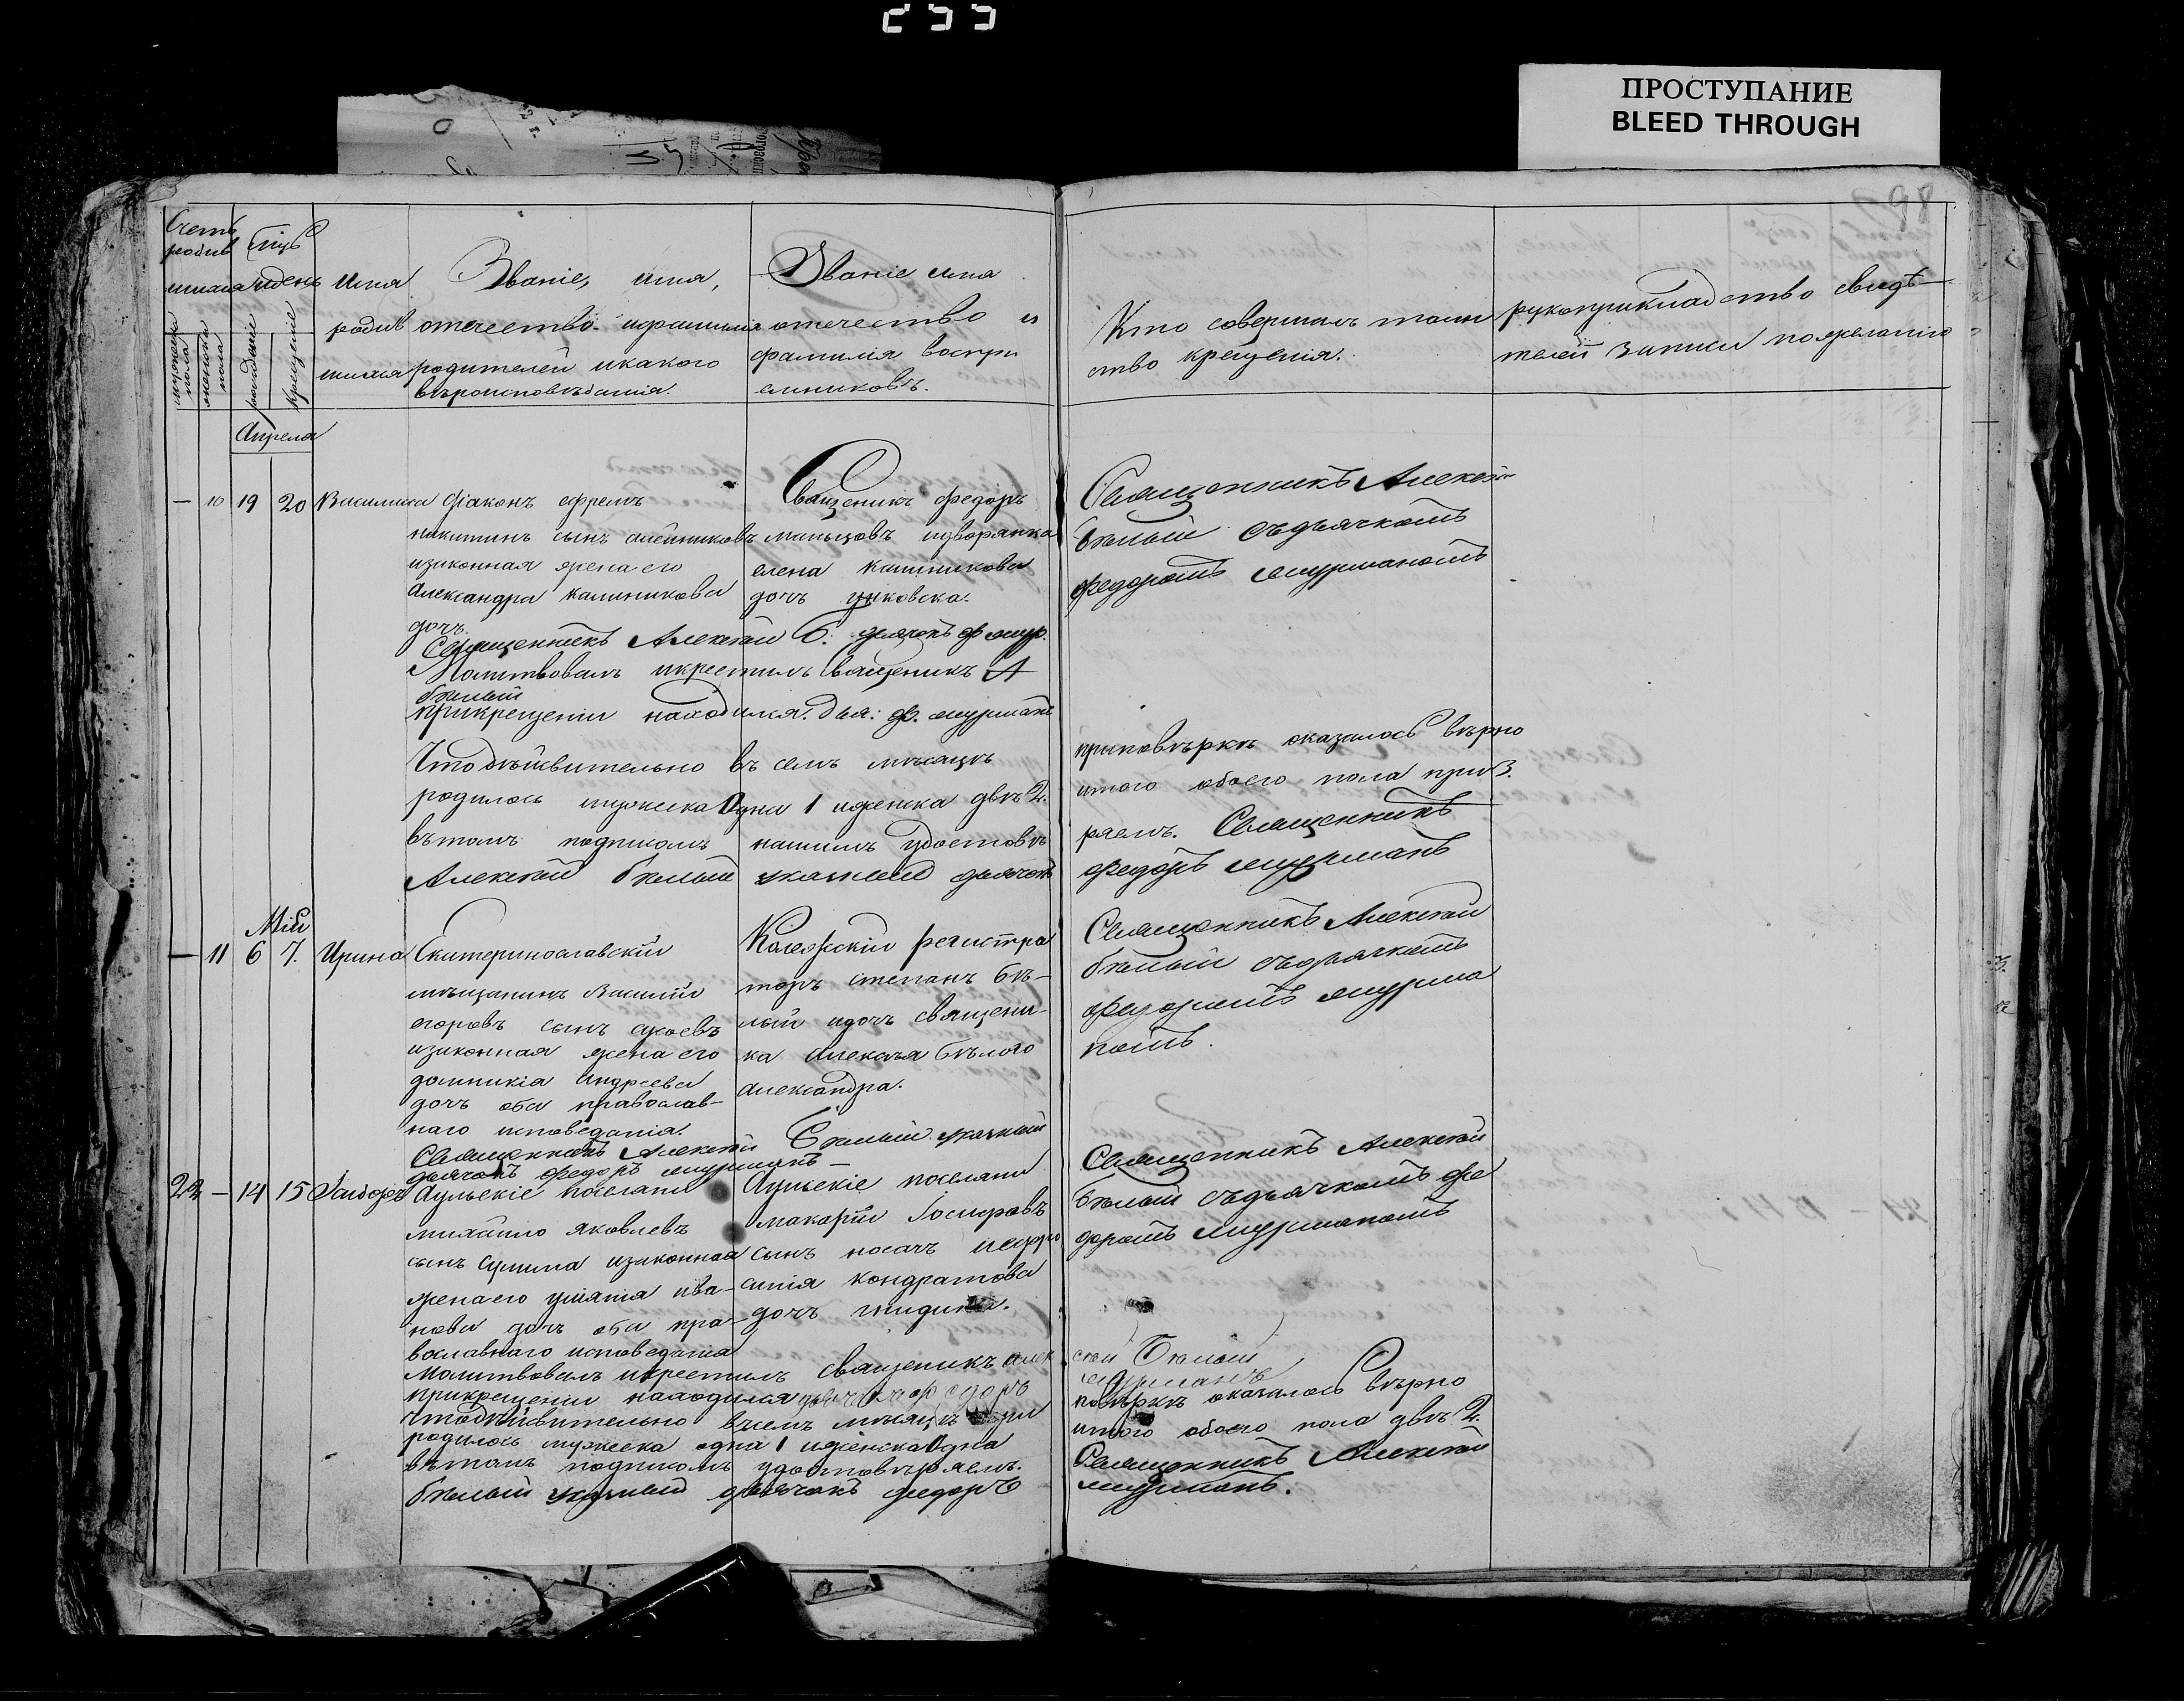 255
ПРОСТУПАНИЕ
BLEED THROUGH
98
Счетъ
родив
шихся
мужеска
пола
женска
пола
Мцъ
и день
рожденіе
крещеніе
Имя
родив
шихся
Званіе, имя,
отечество и фамилія
родителей и какого
вѣроисповѣданія.
Званіе имя
отечество и
фамилія воспри
емниковъ.
Кто совершалъ таин
ство крещенія.
рукоприкладство свидѣ
телей записи по желанію
Апреля
— 10 19 20 Василиса
Діаконъ ефремъ
никитинъ сынъ алейниковъ
изаконная жена его
Александра калиникова
дочъ.
Священикъ федоръ
мальцовъ идворянка
елена калиникова
дочъ
Священникъ Алексѣй
бѣлый съдьячкомъ
федоромъ мурманомъ
Священникъ Алексѣй Б. дьячокъ ф мур.
Молитвовалъ икрестилъ Священикъ А
бѣлый
прикрещеніи находился. дья: ф. мурманъ
Что дѣйсвительно въ семъ мѣсяцѣ
родилось мужеска Одна 1 иженска двѣ 2.
въ томъ подписомъ нашимъ удостовѣ
Алексѣй бѣлый дьячокъ
приповѣркѣ оказалось вѣрно
итого обоего пола три 3.
ряемъ. Священникъ
федоръ мурманъ
Мій
— 11 6 7. Ирина
Екатеринославскій
мѣщанинъ Василій
егоровъ сынъ
изаконная жена его
домникіа андреева
дочъ оба православ-
наго исповеданія.
Колежскій регистра
торъ степанъ бѣ-
лый идочъ священи-
ка Алексѣя бѣлого
александра.
Священникъ Алексѣй
бѣлый съдьячкомъ
федоромъ мурма
номъ.
Священникъ Алексѣй Бѣлый.
дьячокъ федоръ мурманъ
— 14 15 Ісидоръ
Аульскіе поселяни
михайло яковлевъ
сынъ изаконная
жена его ива-
нова дочъ оба пра-
вославнаго исповеданіа
Аульскіе поселяни
макарій Іосиповъ
сынъ носачъ
кондратова
дочъ
Священникъ Алексѣй
бѣлый съдьячкомъ фе
доромъ мурманомъ
Молитвовалъ икрестилъ Священикъ алек
сѣй Бѣлый
прикрещеніи находился дьячокъ федоръ
мурманъ
чтодѣйсвительно всемъ мѣсяцѣ при
повѣркѣ оказалось вѣрно
родилось мужеска одна 1 иженска Одна
итого обоего пола двѣ 2.
вътомъ подписомъ удостовѣряемъ.
Священникъ Алексѣй
бѣлый дьячокъ федоръ
мурманъ.